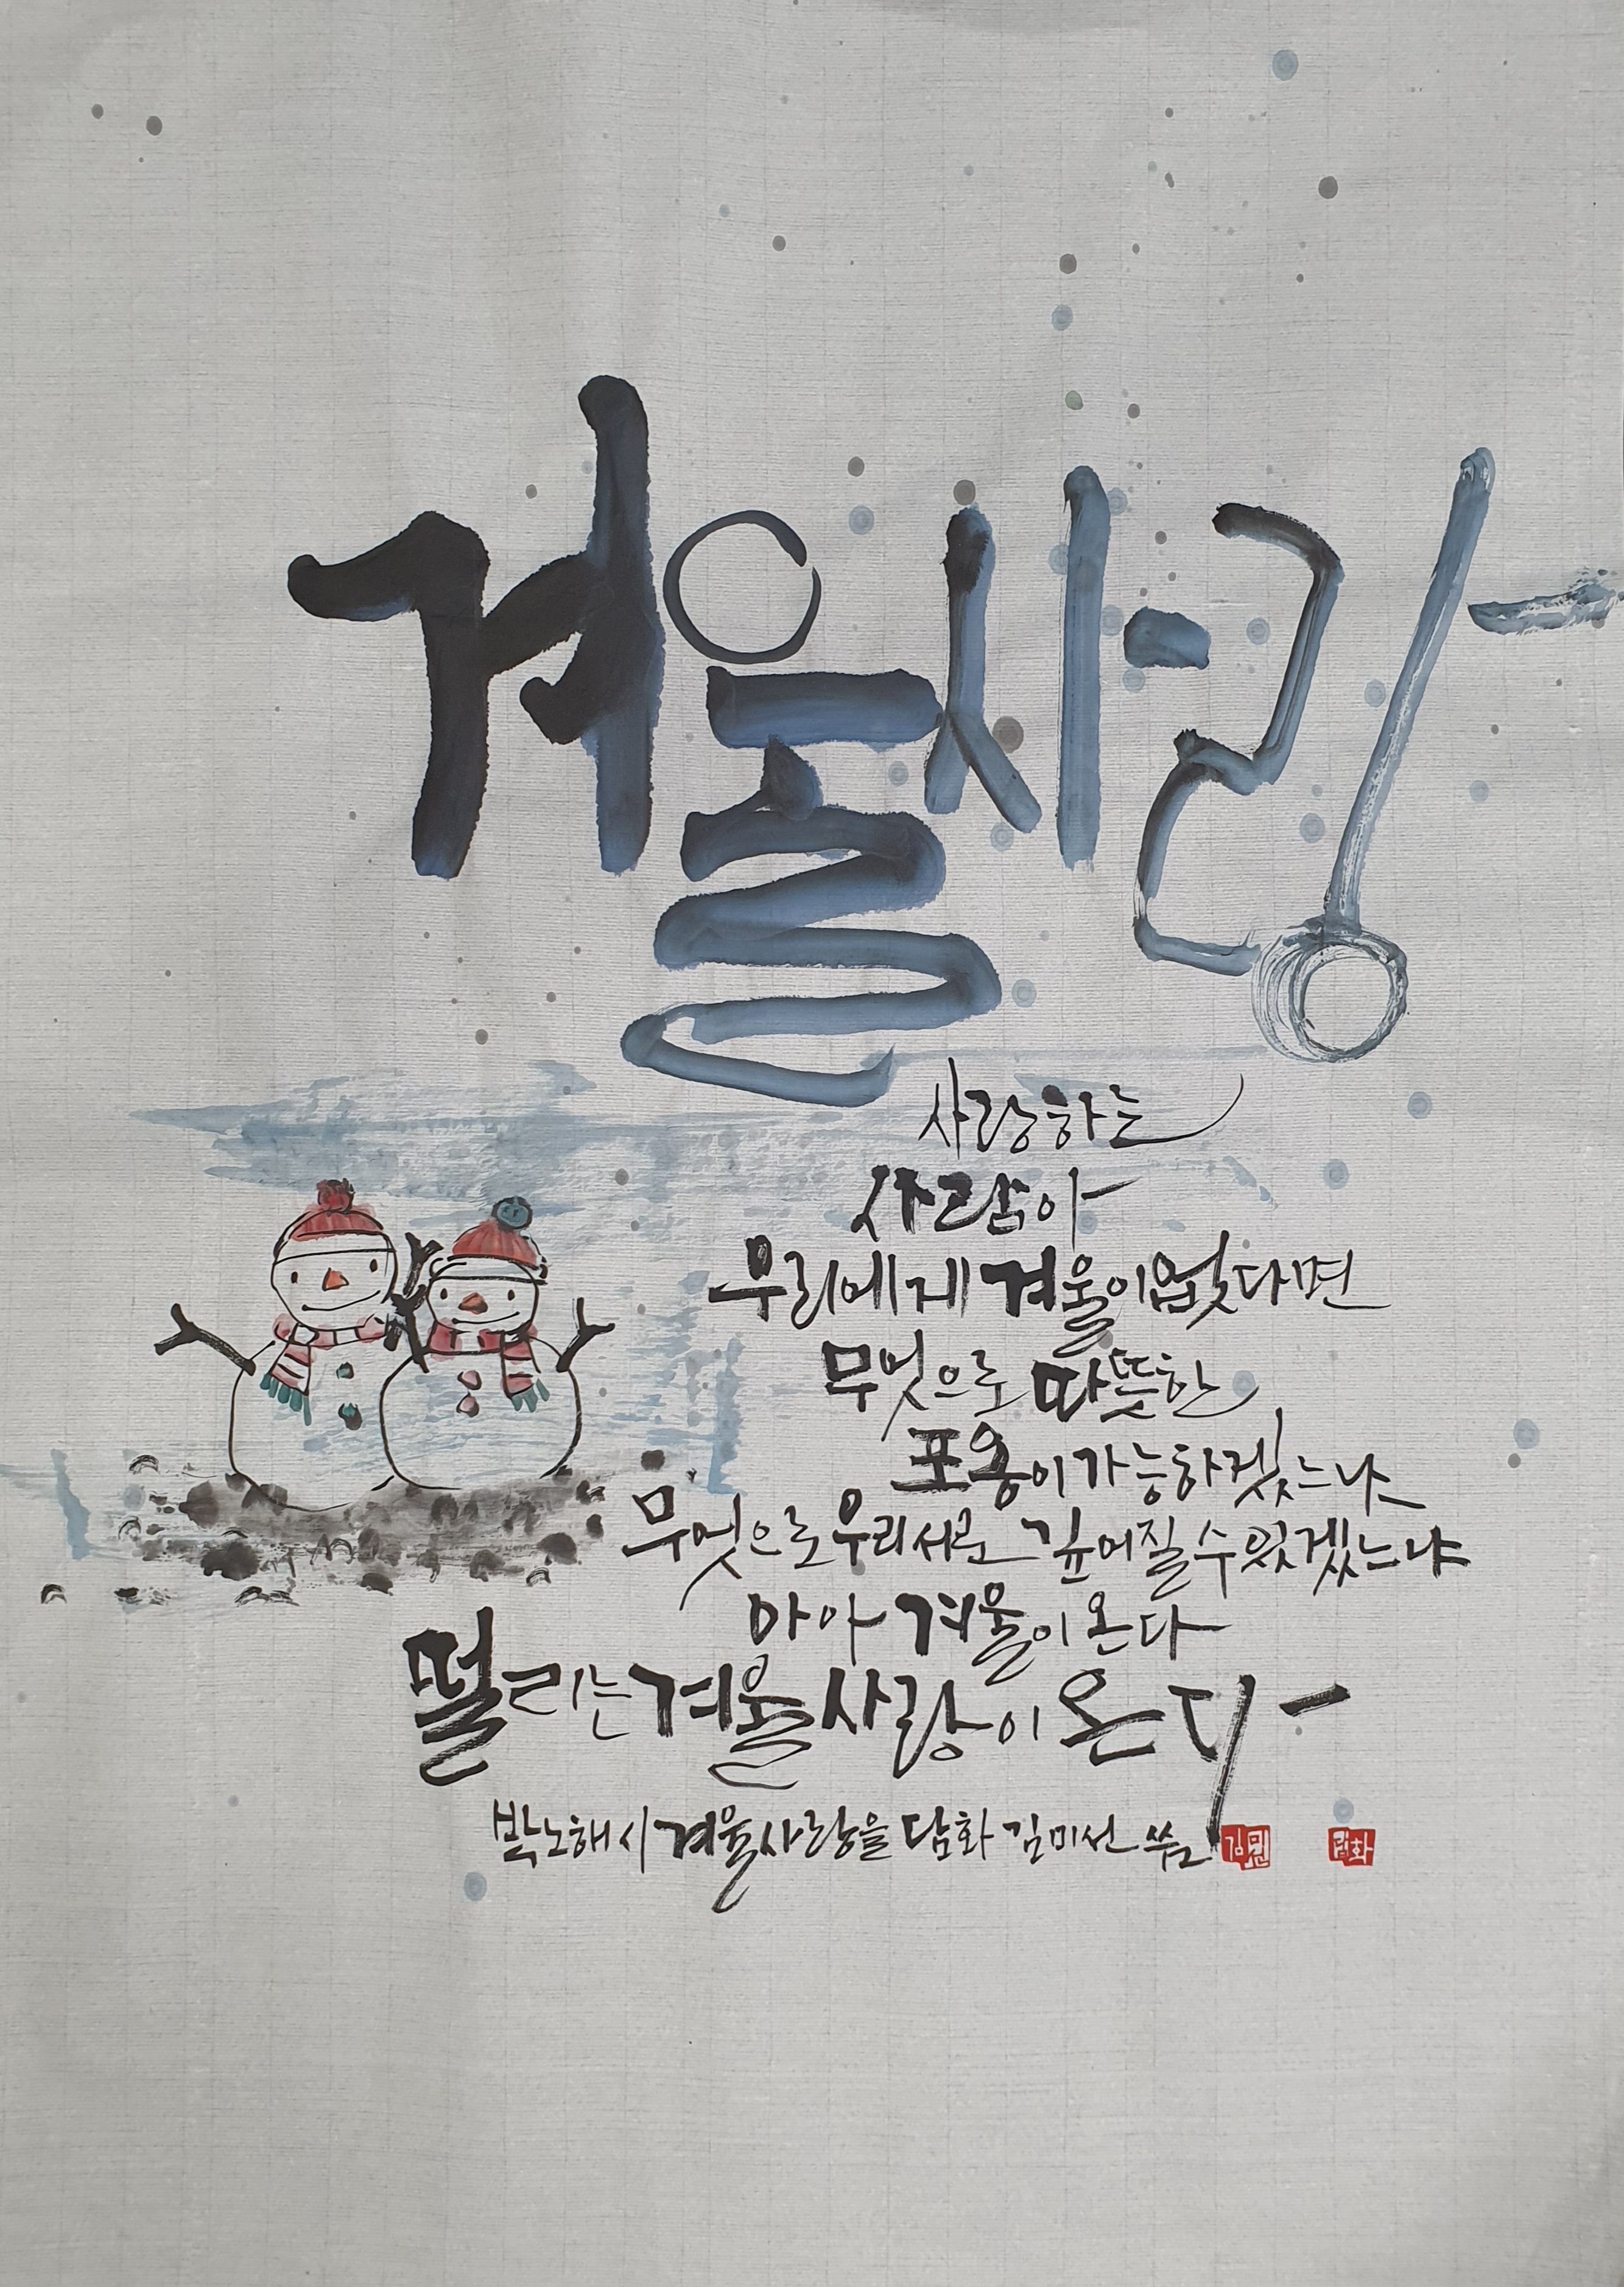 겨울사랑
사랑하는
사람아
우리에게 겨울이 없다면
무엇으로 따뜻한
포옹이 가능하겠느냐
무엇으로 우리 서로 깊어질 수 있겠느냐
아아 겨울이 온다
떨리는 겨울 사랑이 온다
박노해 시 겨울사랑을 담화 김미선 쓰고
담화